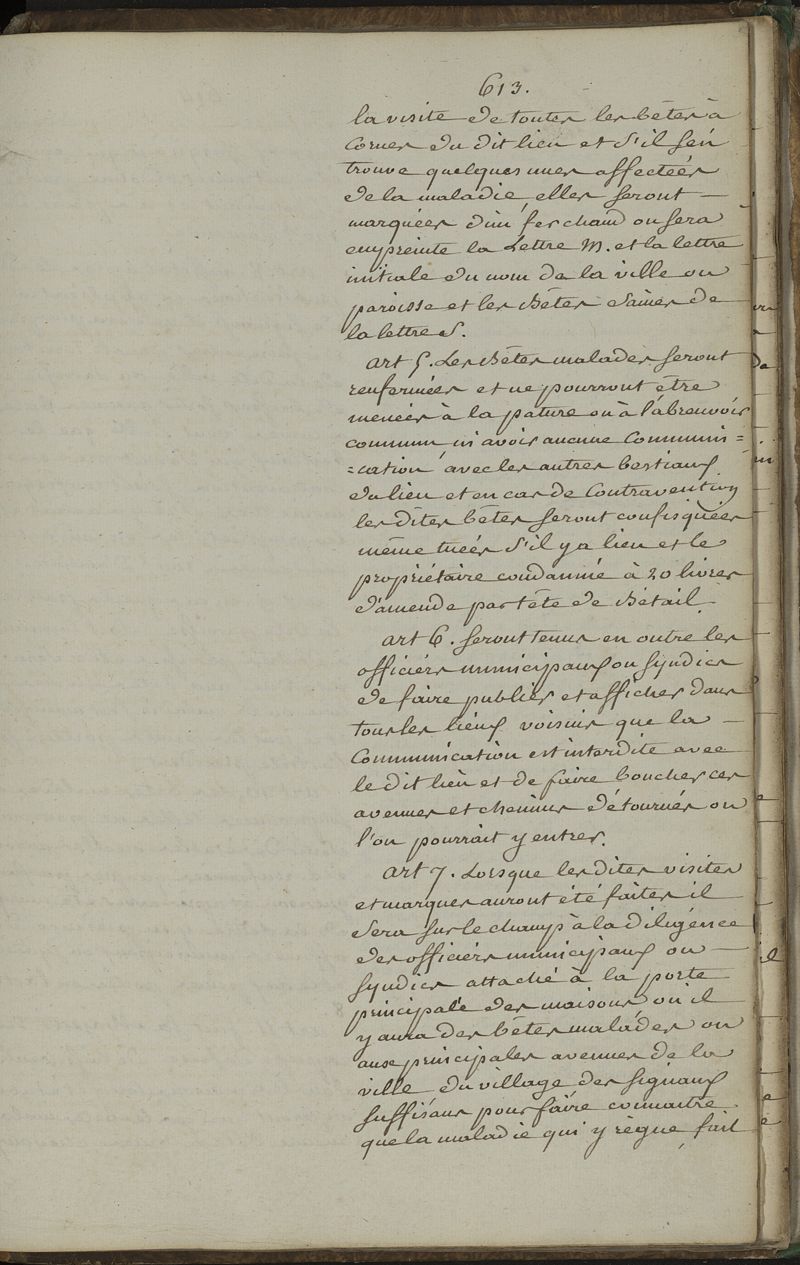 613.
la visite de toutes les bêtes à
cornes du dit lieu et s'il s'en
trouve quelques unes affectées
de la maladie, elles seront —
marquées d'un fer chaud ou sera
empreinte la Lettre M. et la lettre
initiale du nom de la ville ou
paroisse et les Bêtes saines de
la lettre S.
art 5. Les Bêtes malades seront
renfermées et ne pourront être
menées à la pature ou à l'abreuvoir
commun ni avoir aucune Communi=
=cation avec les autres bestiaux
du lieu et en cas de Contravention
les dites bêtes seront confisquées
même tuées s'il y a lieu et le
propriétaire condamné à 20 livres
d'amende par tête de Bétail.
art 6. seront tenus en outre les
officiers municipaux ou syndics
de faire publier et afficher dans
tous les lieux voisins que la —
Communication est interdite avec
le dit lieu et de faire boucher ces
avenues et chemins détournés ou
l'on pourrait y entrer.
art 7. Lorsque les dites visites
et marques auront été faites il
sera sur le champ à la diligence
des officiers municipaux ou —
syndics attaché à la porte
principale des maisons ou il
y aura des bêtes malades ou
aux principales avenues de la
ville du village des signaux
suffisans pour faire connaitre
que la maladie qui y règne, fait